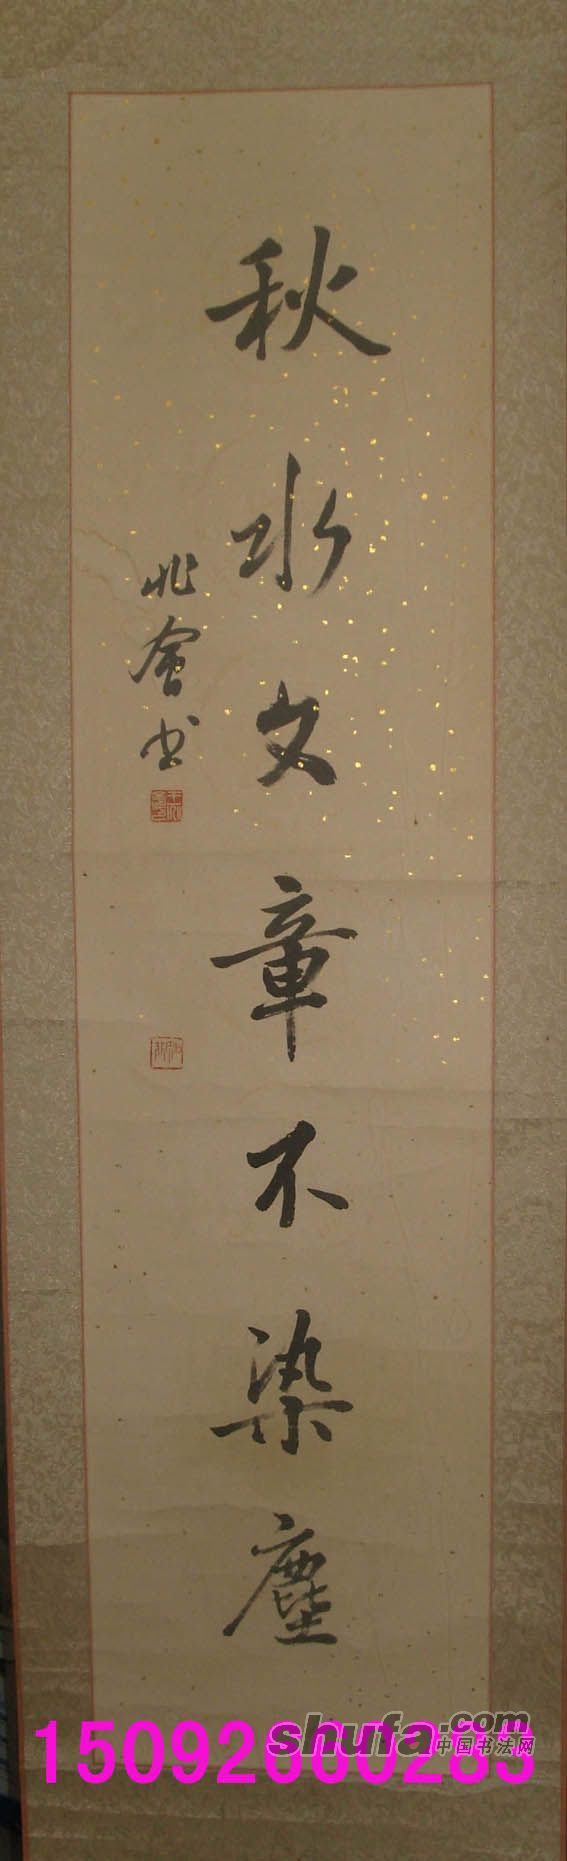 秋水文章不染塵
兆會书
shufa.com
中国书法网